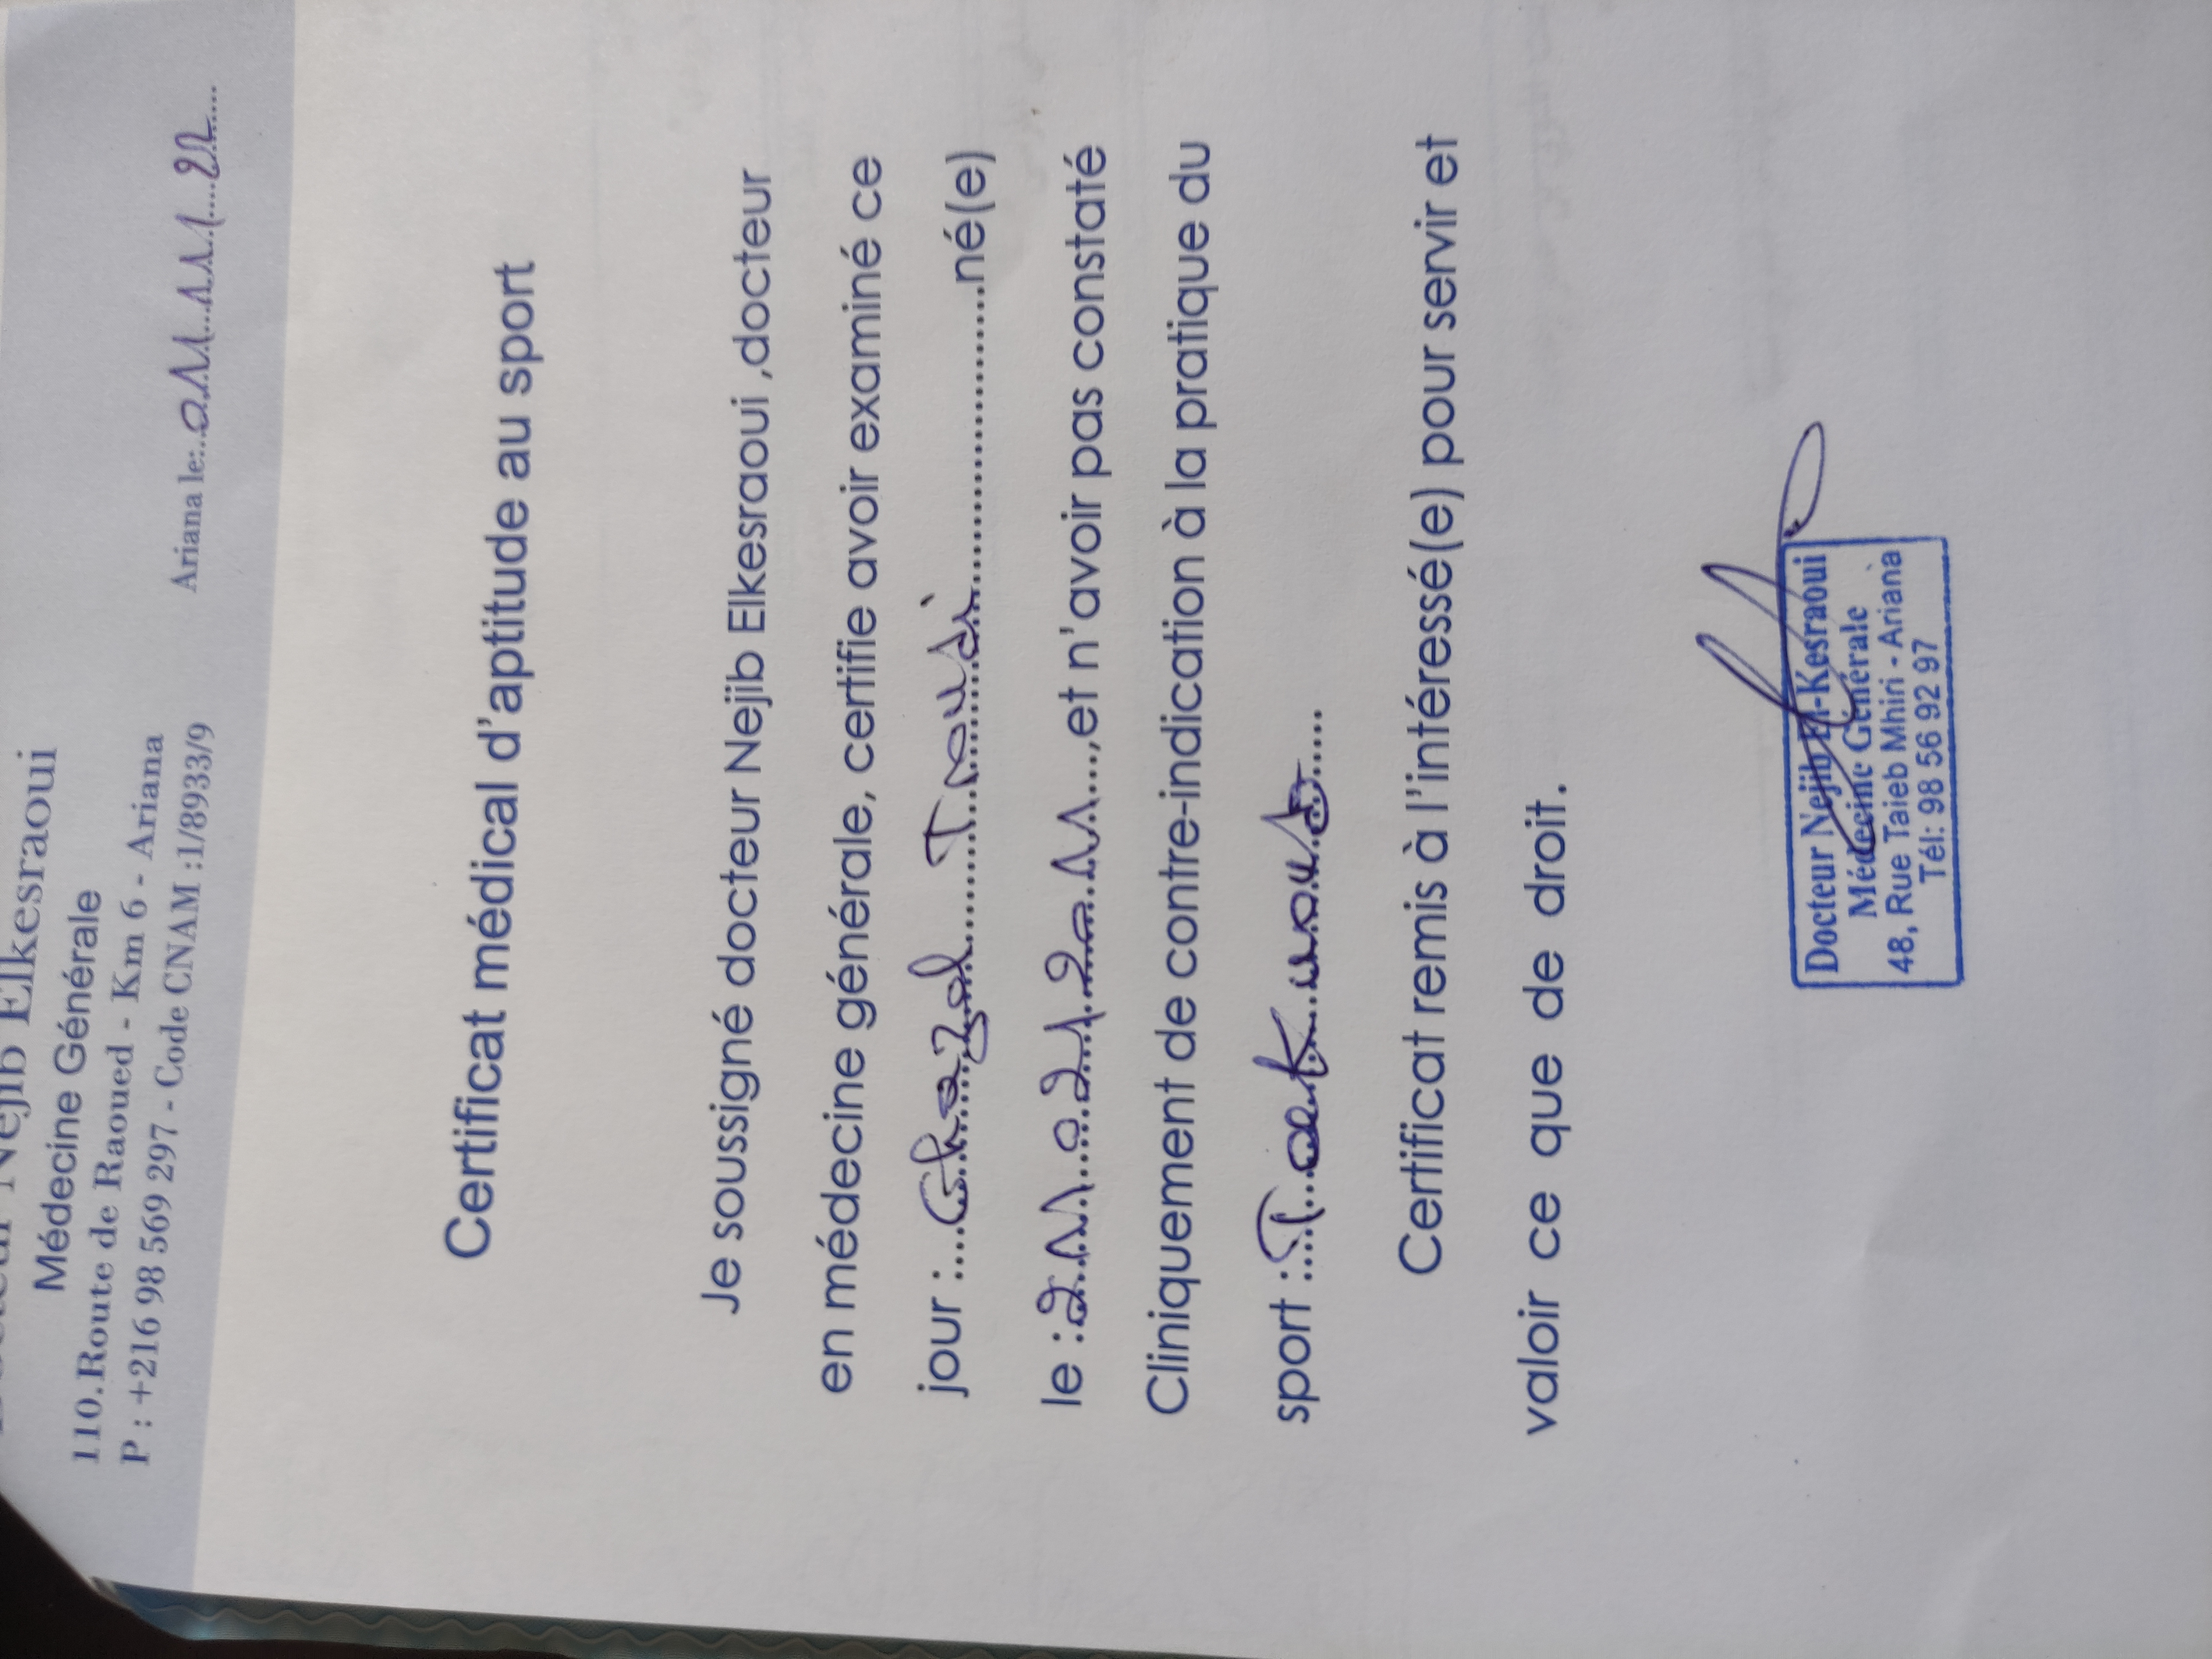 Docteur Nejib Elkesraoui
Médecine Générale
110.Route de Raoued - Km 6 - Ariana
P : +216 98 569 297 - Code CNAM :1/8933/9
Ariana le:..01/11/22......
Certificat médical d'aptitude au sport
Je soussigné docteur Nejib Elkesraoui ,docteur
en médecine générale, certifie avoir examiné ce
jour :....Ghazel......................né(e)
le :........,et n'avoir pas constaté
Cliniquement de contre-indication à la pratique du
sport :.........
Certificat remis à l'intéressé(e) pour servir et
valoir ce que de droit.
Docteur Nejib El-Kesraoui
Médecine Générale
48, Rue Taieb Mhiri - Ariana
Tél: 98 56 92 97